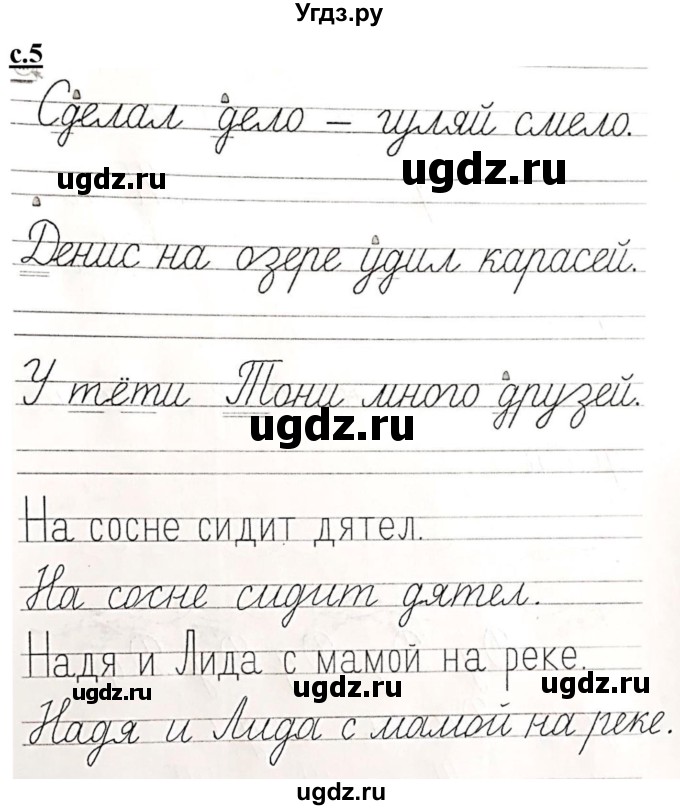 Угдз.ру
с.5
Сделал дело – гуляй смело.
ugdz.ru ugdz.ru
Денис на озере удил карасей.
У тёти Тони много друзей.
ugdz.ru
На сосне сидит дятел.
На сосне сидит дятел.
Надя и Лида с мамой на реке.
ugdz.ru ugdz.ru ugdz.ru
Надя и Лида с мамой на реке.
ugdz.ru